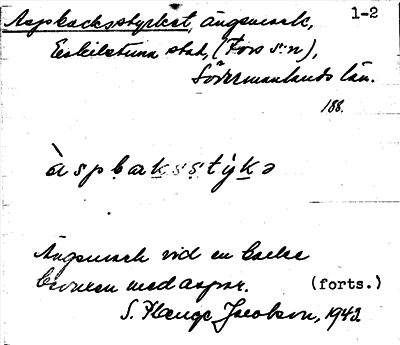 Aspbacksstycket, ängsmark, 1-2
Eskilstuna stad, (Fors s:n),
Södermanlands län.
188.
àspbaksstýkə
Ängsmark vid en backe
bevuxen med aspar. (forts.)
S. Plenge Jacobson, 1942